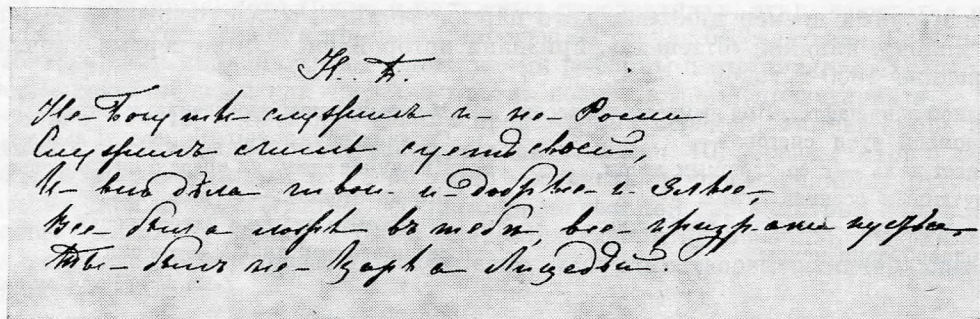 Н. П.
Не Богу ты служилъ и не России
Служилъ лишь суетѣ своей,
И всѣ дѣла твои и добрые и злые,
Все было ложь въ тебѣ, все призраки пустые,
Ты былъ не Царь а Лицедѣй.